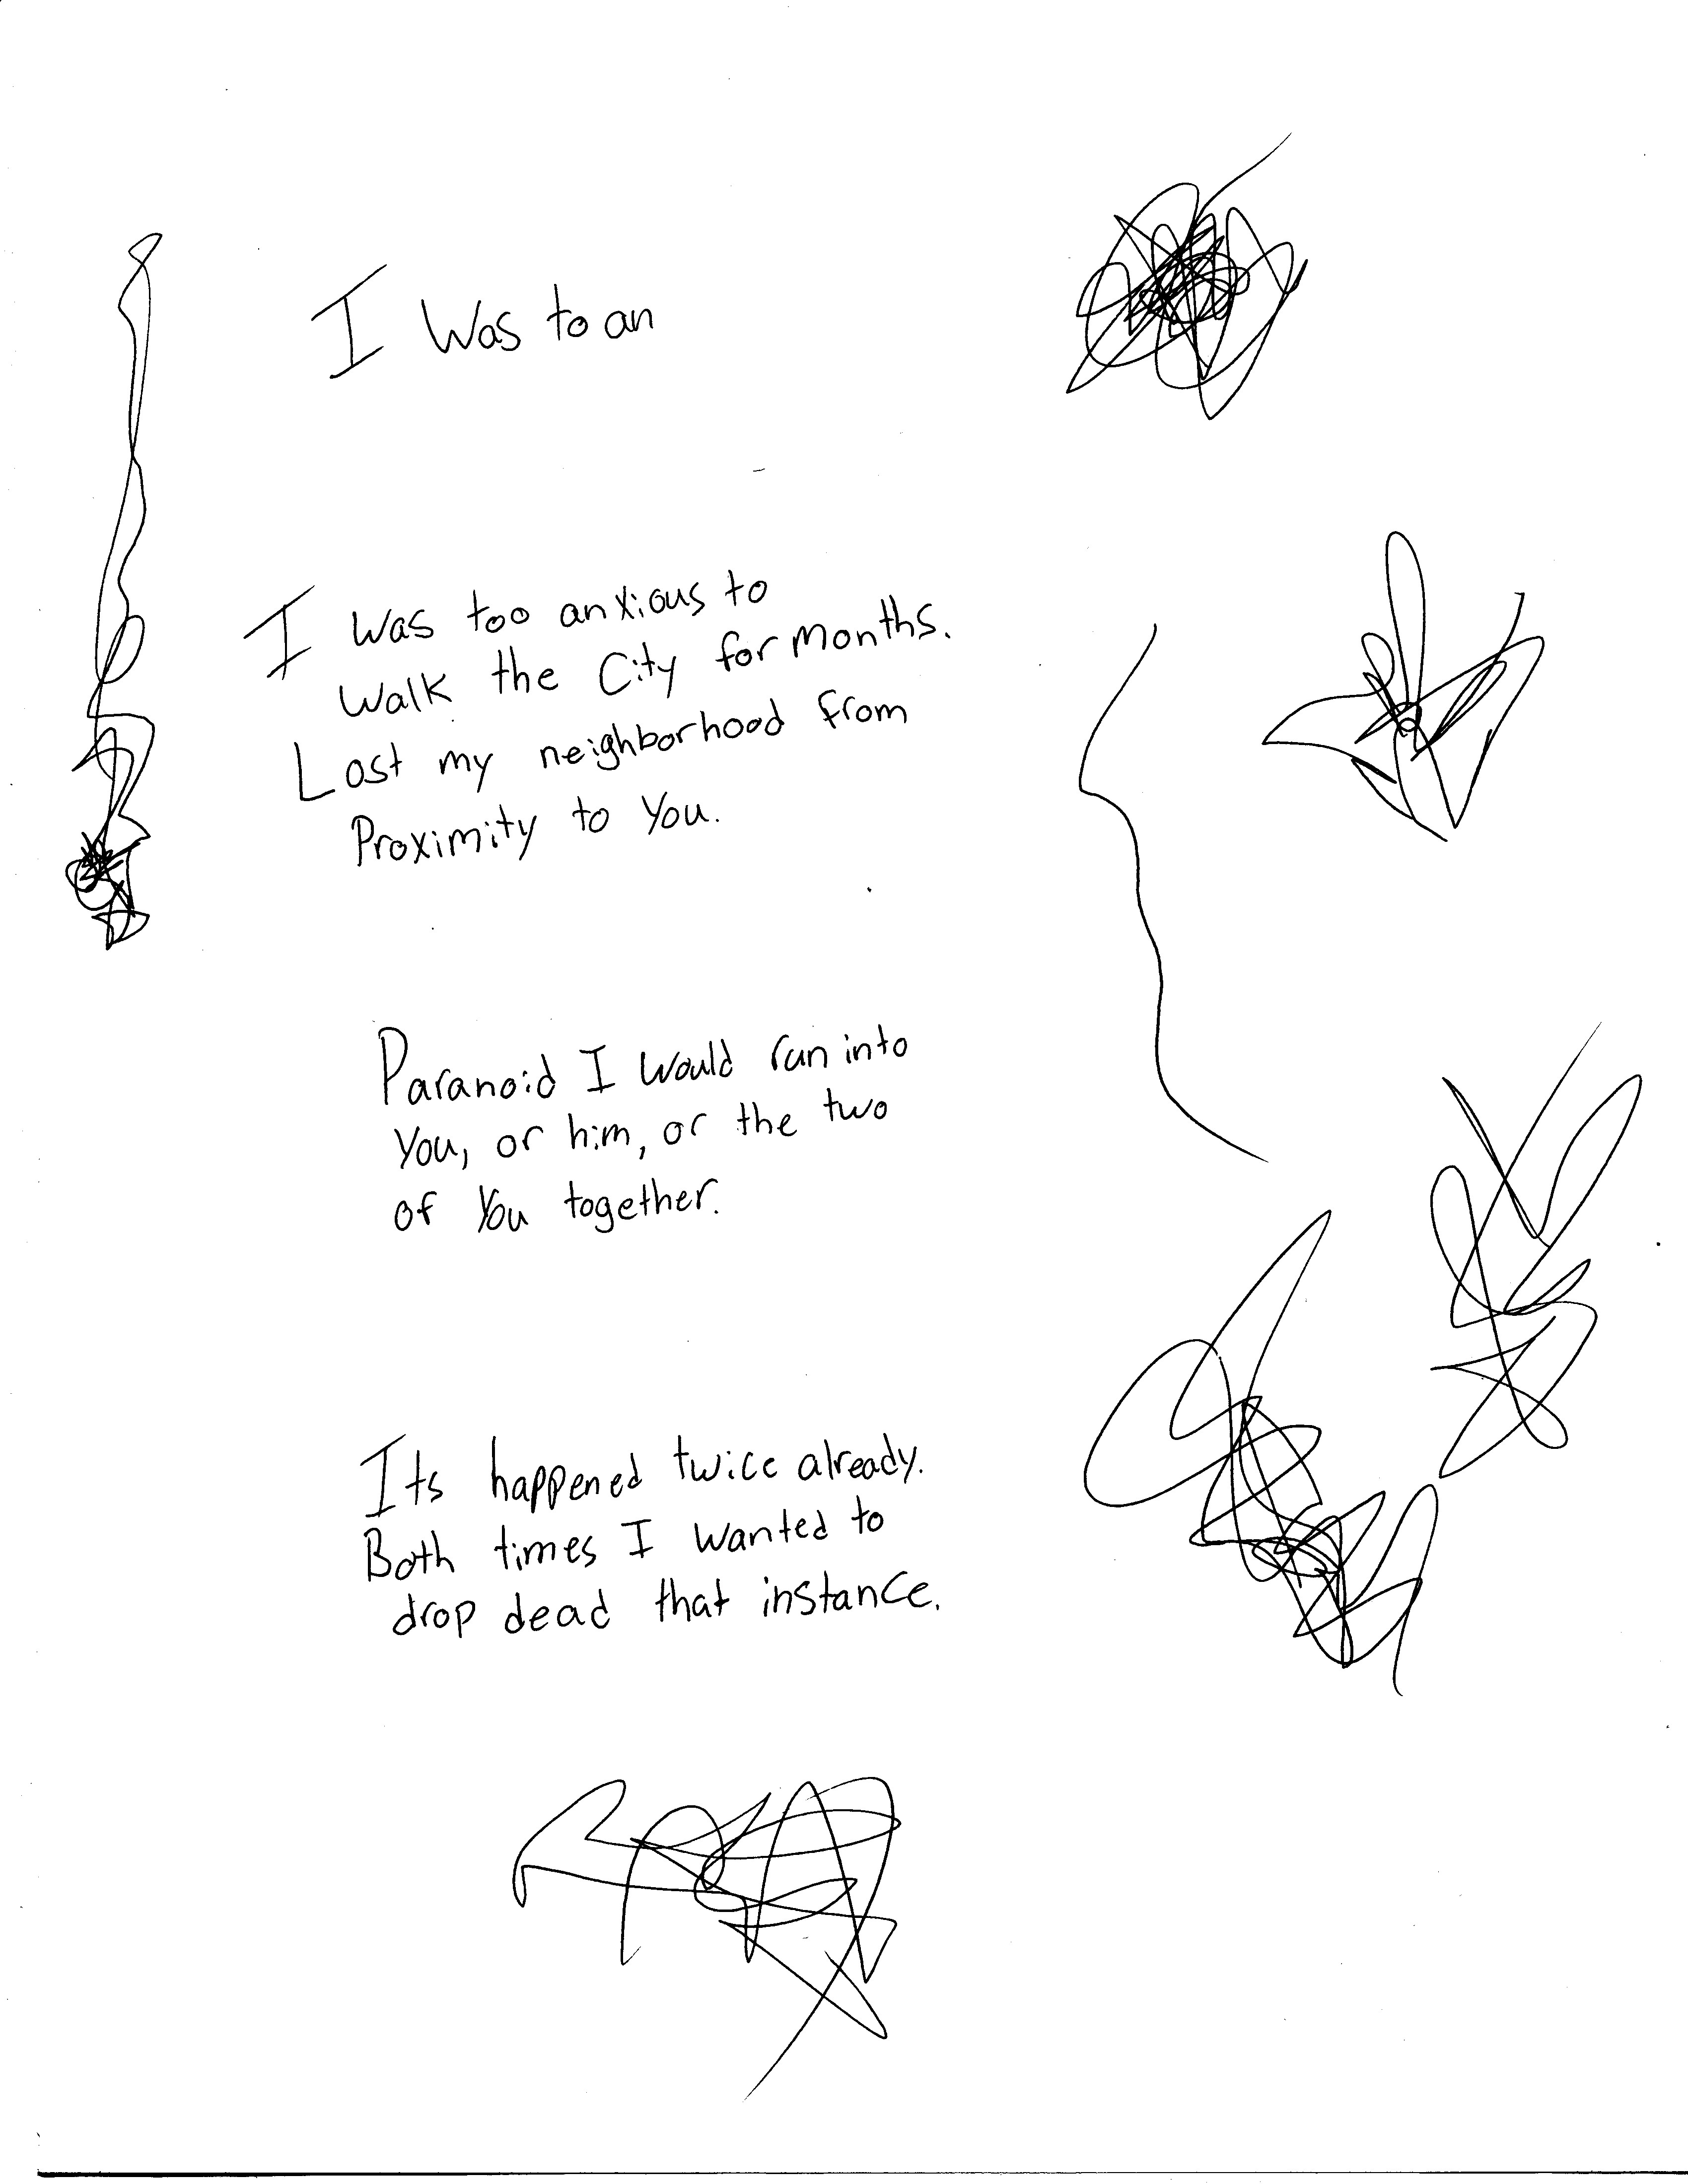 I Was to an
I Was too anxious to
Walk the City for Months.
Lost my neighborhood from
Proximity to You.
Paranoid I Would run into
You, or him, or the two
of You together.
Its happened twice already.
Both times I wanted to
drop dead that instance.